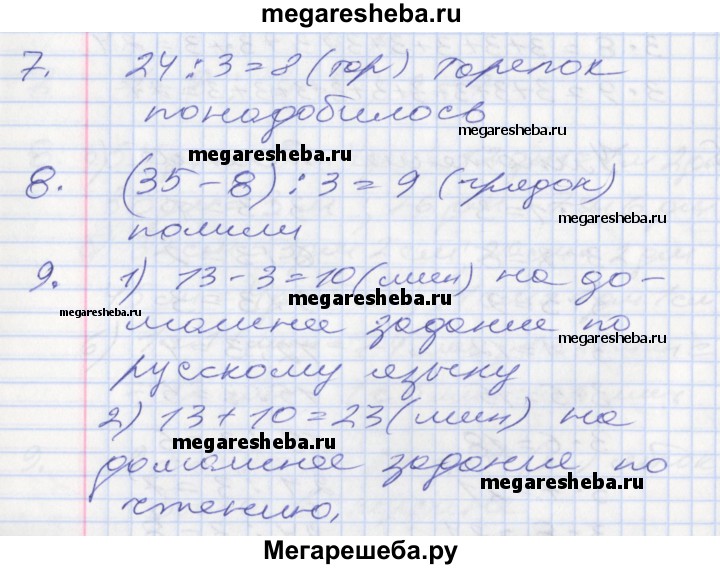 megaresheba.ru
7. 24 : 3 = 8 (тар) тарелок
понадобилось
megaresheba.ru
megaresheba.ru
8. (35 - 8) : 3 = 9 (грядок)
megaresheba.ru
полили
9. 1) 13 - 3 = 10 (мин) на до-
megaresheba.ru
megaresheba.ru
машнее задание по
megaresheba.ru
русскому языку
2) 13 + 10 = 23 (мин) на
megaresheba.ru
домашнее задание по
megaresheba.ru
чтению.
Мегарешеба.ру